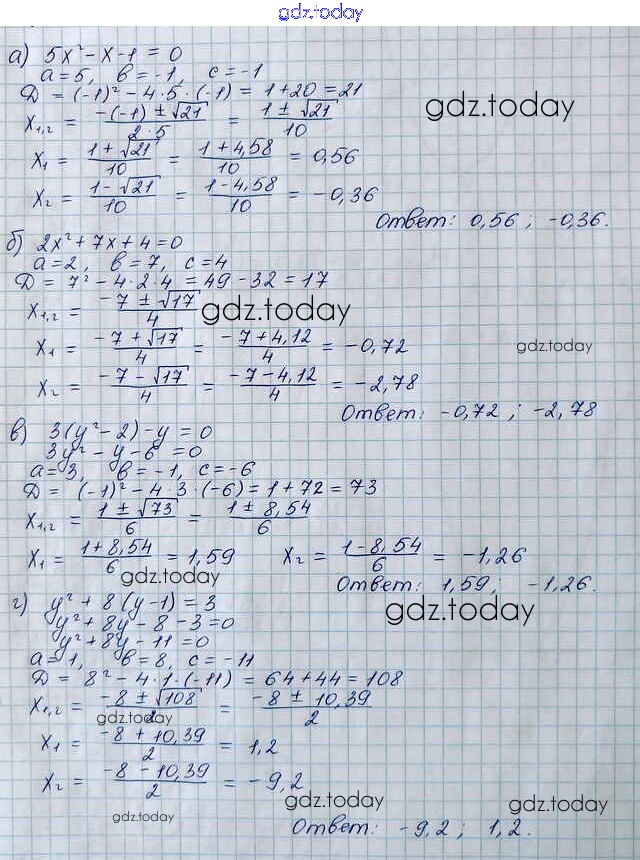 gdz.today
а) 5x² - x - 1 = 0
a = 5, b = -1, c = -1
D = (-1)² - 4 · 5 · (-1) = 1 + 20 = 21
gdz.today
x₁,₂ = (-(-1) ± √21)/(2 · 5) = (1 ± √21)/10
x₁ = (1 + √21)/10 = (1 + 4,58)/10 = 0,56
x₂ = (1 - √21)/10 = (1 - 4,58)/10 = -0,36
Ответ: 0,56; -0,36.
б) 2x² + 7x + 4 = 0
a = 2, b = 7, c = 4
D = 7² - 4 · 2 · 4 = 49 - 32 = 17
x₁,₂ = (-7 ± √17)/4
gdz.today
x₁ = (-7 + √17)/4 = (-7 + 4,12)/4 = -0,72
gdz.today
x₂ = (-7 - √17)/4 = (-7 - 4,12)/4 = -2,78
Ответ: -0,72; -2,78
в) 3(y² - 2) - y = 0
3y² - y - 6 = 0
a = 3, b = -1, c = -6
D = (-1)² - 4 · 3 · (-6) = 1 + 72 = 73
x₁,₂ = (1 ± √73)/6 = (1 ± 8,54)/6
x₁ = (1 + 8,54)/6 = 1,59 x₂ = (1 - 8,54)/6 = -1,26
gdz.today
Ответ: 1,59; -1,26.
г) y² + 8(y - 1) = 3
gdz.today
y² + 8y - 8 - 3 = 0
y² + 8y - 11 = 0
a = 1, b = 8, c = -11
D = 8² - 4 · 1 · (-11) = 64 + 44 = 108
x₁,₂ = (-8 ± √108)/2 = (-8 ± 10,39)/2
gdz.today
x₁ = (-8 + 10,39)/2 = 1,2
x₂ = (-8 - 10,39)/2 = -9,2
gdz.today
gdz.today
gdz.today
Ответ: -9,2; 1,2.